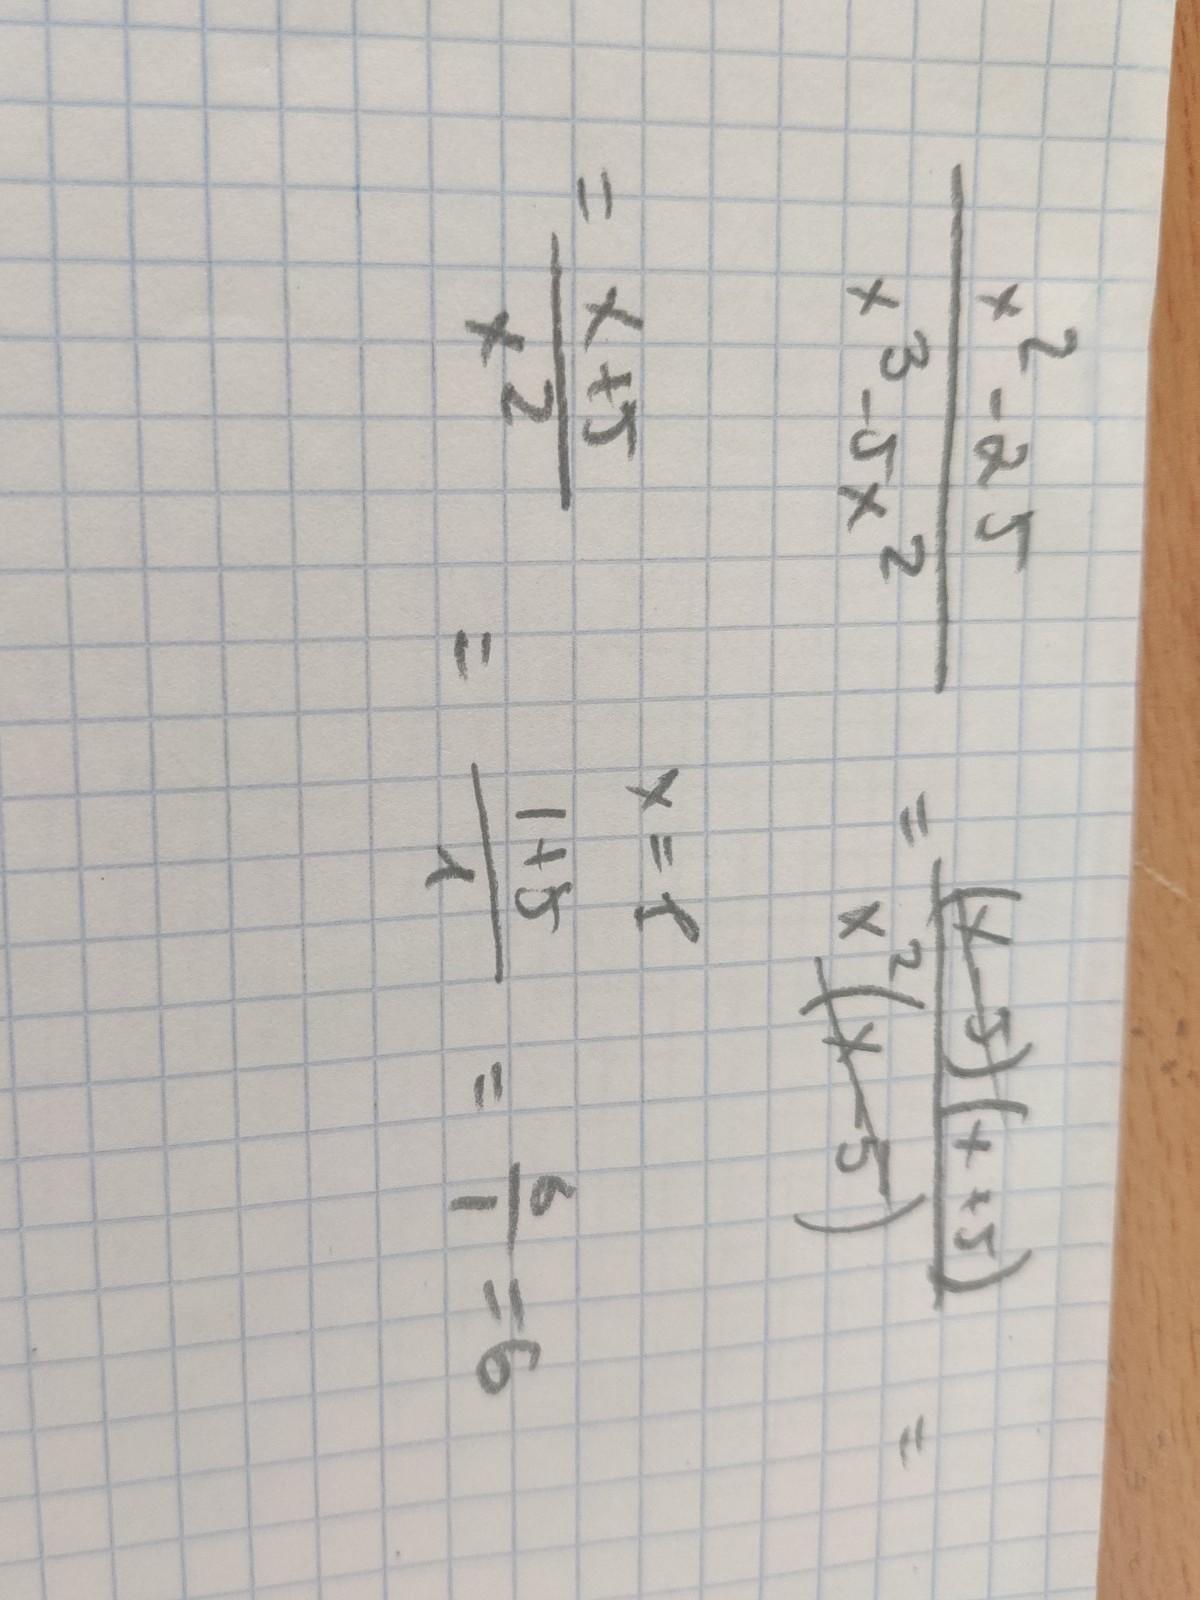 x²-25/x³-5x² = (x-5)(x+5)/x²(x-5) =
x=1
= x+5/x² = 1+5/1 = 6/1 = 6